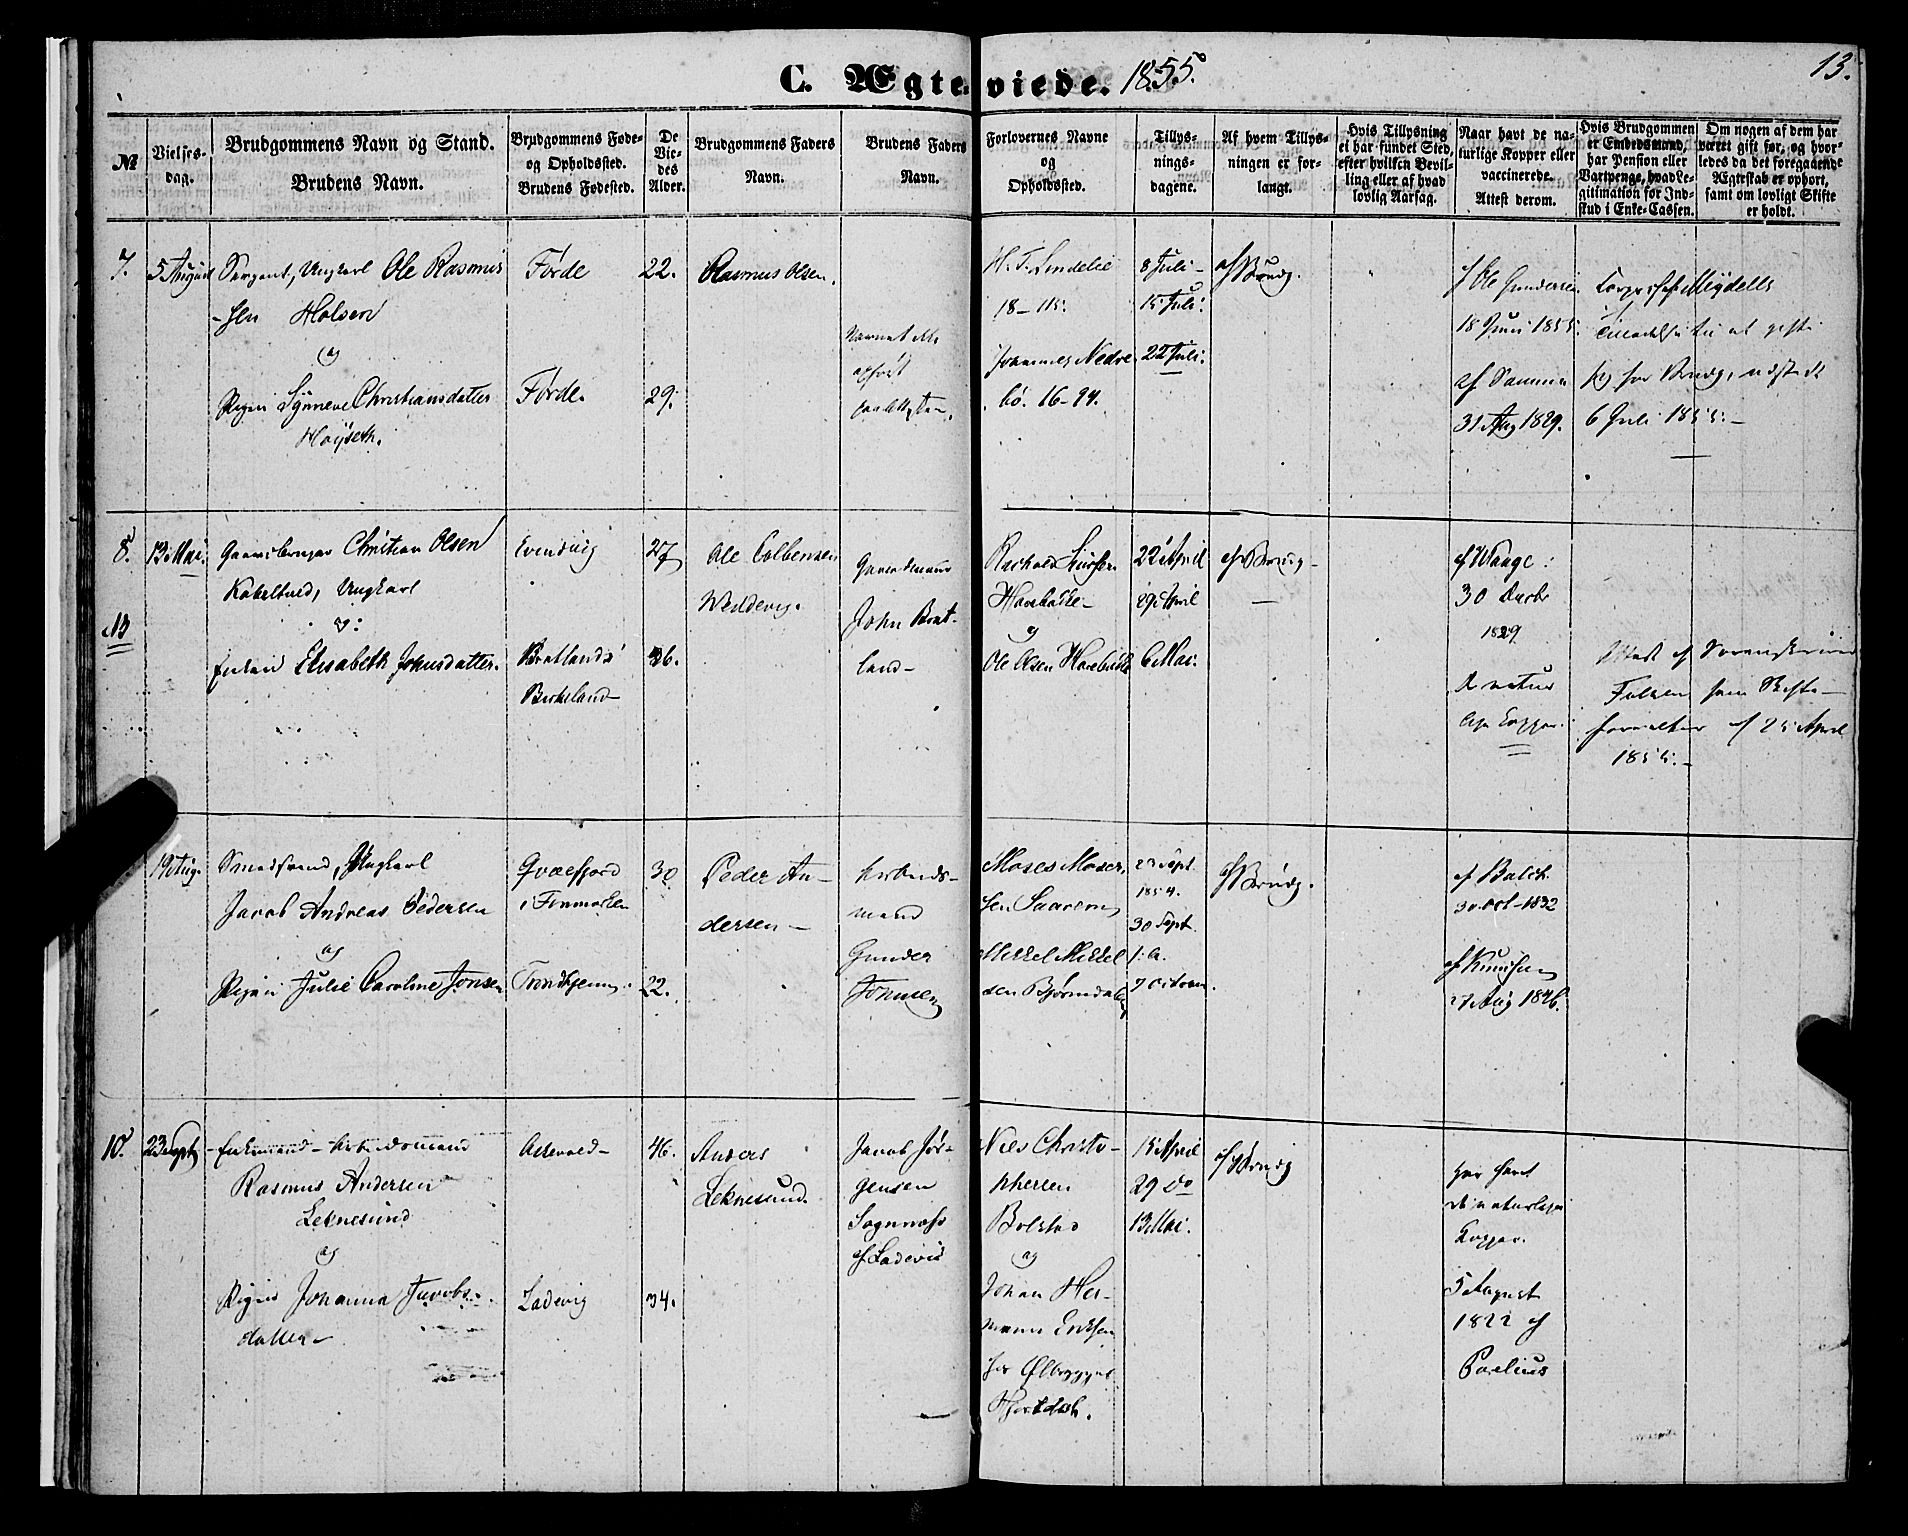 C. Ægteviede. 1855.
13.
№
Vielses-
dag.
Brudgommens Navn og Stand.
Brudens Navn.
Brudgommens Føde-
og Opholdssted.
Brudens Fødested.
De
Vie-
des
Alder.
Brudgommens Faders
Navn.
Brudens Faders
Navn.
Forlovernes Navne
og
Opholdssted.
Tillys-
nings-
dagene.
Af hvem Tillys-
ningen er for-
langt.
Hvis Tillysning
ei har fundet Sted,
efter hvilken Bevil-
ling eller af hvad
lovlig Aarsag.
Naar havt de na-
turlige Kopper eller
vaccinerede.
Attest derom.
Hvis Brudgommen
er Embedsmand,
har Pension eller
Vartpenge, hvad Le-
gitimation for Ind-
skud i Enke-Cassen.
Om nogen af dem har
været gift før, og hvor-
ledes da det foregaaende
Ægteskab er ophørt,
samt om lovligt Skifte
er holdt.
7.
5 August
Sergent, Ungkarl Ole Rasmus
-sen Holsen
og
Pigen Synneve Christiansdatter
Høyseth.
Førde
Førde.
22.
29.
Rasmus Olsen.
Navnet ikke
opført
paa Attesten.
H. T. Lindelie
18-115.
Johannes Nedre-
bö. 16-94.
8 Juli-
15 Juli.
22 Juli.
af Brudg.
af Ole Gundersen
18 Juni 1855.
af Samme
31 Aug 1829.
Tilladelse til at gifte
sig for Brudg, udstedt
6 Juli 1855.-
8.
13 Mai.
Gaardbruger Christian Olsen
Kobeltved, Ungkarl
og
Enken Elisabeth Johnsdatter.
Evendvig
Bratlands
Birkeland-
27
36.
Ole Colbensen
Gaardmand
John Brat-
land-
Havebakke-
og
Ole Olsen Havebakke
22 April
29 April
6 Mai.
af Brudg-
af Waage:
30 Decbr
1829
De natur
lige Kopper.
NB
Attest af Sorenskriver
Falsen som Skifte-
forvalter af 25 April
1855.-
19 Aug.
Smedsvend, Ungkarl
Jacob Andreas Pedersen
og
Pigen Julie Caroline Jonsen
Qvæfjord
i Finmarken
Trondhjem.
30
22.
Peder An-
dersen-
Arbeids-
mand
Gunder
Johnsen
Moses Moses-
sen Saarem
Mikkel Mikkel
sen Bjørndalen
23 Sept.
1854.
30 Sept.
7 October.
af Brudg.
af Balch
30 Oct-1832
af Knudsen
27 Aug 1846.
10.
23 Septr
Enkemand-Arbeidsmand
Rasmus Andersen
Leknesund
og
Pigen Johanna Jacobs-
datter-
Askevold-
Ladevig
46.
34.
Anders
Leknesund.
Jacob Jør-
gensen
Sognnæs
af Ladevig
Niels Christo-
phersen
Bolstad
og
Johan Her-
mann Eriksen
15 April
29 do
13 Mai.
af Brudg
har havt
de naturlige
Kopper.
5 August
1822 af
Parelius